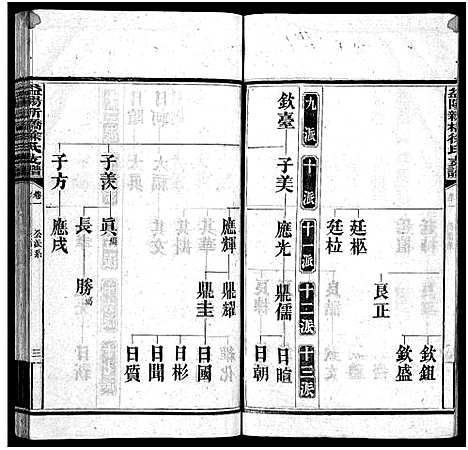 益陽新橋徐氏支譜
欽鈕
欽盛
良正
廷樞
廷柆
九派
十派
十一派
十二派
十三派
欽臺
子美
應光
鼎儒
日暄
日朝
應輝
鼎耀
鼎圭
日國
日彬
日聞
日質
子羨
眞
長
勝
子方
應戌
益陽新橋徐氏支譜
卷一
三